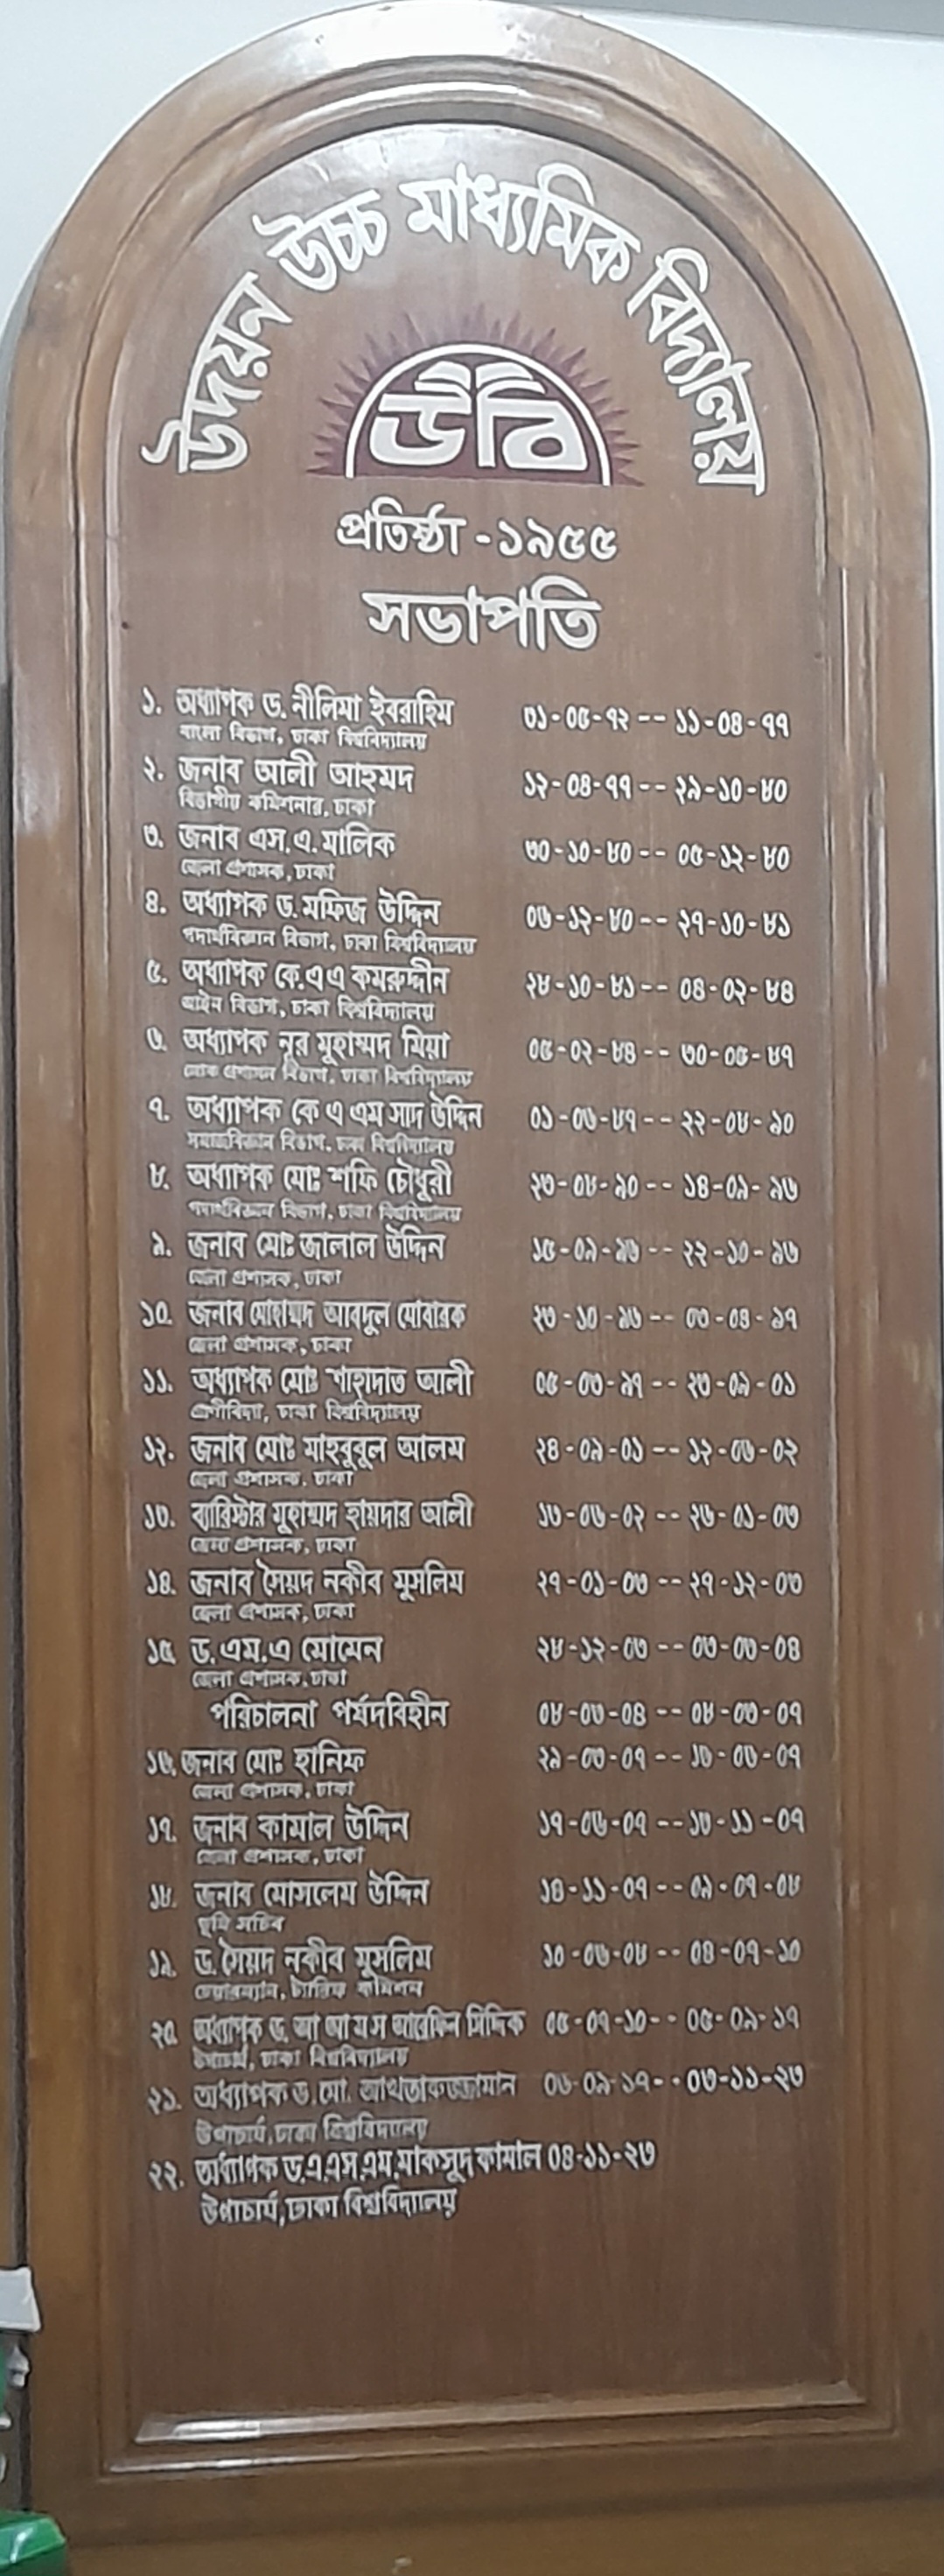 উদয়ন উচ্চ মাধ্যমিক বিদ্যালয়
উবি
প্রতিষ্ঠা - ১৯৫৫
সভাপতি
১. অধ্যাপক ড. নীলিমা ইবরাহিম ৩১-০৫-৭২ -- ১১-০৪-৭৭
বাংলা বিভাগ, ঢাকা বিশ্ববিদ্যালয়
২. জনাব আলী আহমদ ১২-০৪-৭৭ -- ২৯-১০-৮০
বিভাগীয় কমিশনার, ঢাকা
৩. জনাব এস.এ.মালিক ৩০-১০-৮০ -- ০৫-১২-৮০
জেলা প্রশাসক, ঢাকা
৪. অধ্যাপক ড. মফিজ উদ্দিন ০৬-১২-৮০ -- ২৭-১০-৮১
পদার্থবিজ্ঞান বিভাগ, ঢাকা বিশ্ববিদ্যালয়
৫. অধ্যাপক কে.এএ কমরুদ্দীন ২৮-১০-৮১ -- ০৪-০২-৮৪
আইন বিভাগ, ঢাকা বিশ্ববিদ্যালয়
৬. অধ্যাপক নূর মুহাম্মদ মিয়া ০৫-০২-৮৪ -- ৩০-০৫-৮৭
লোক প্রশাসন বিভাগ, ঢাকা বিশ্ববিদ্যালয়
৭. অধ্যাপক কে এ এম সাদ উদ্দিন ০১-০৬-৮৭ -- ২২-০৮-৯০
সমাজবিজ্ঞান বিভাগ, ঢাকা বিশ্ববিদ্যালয়
৮. অধ্যাপক মোঃ শফি চৌধুরী ২৩-০৮-৯০ -- ১৪-০৯-৯৬
পদার্থবিজ্ঞান বিভাগ, ঢাকা বিশ্ববিদ্যালয়
৯. জনাব মোঃ জালাল উদ্দিন ১৫-০৯-৯৬ -- ২২-১০-৯৬
জেলা প্রশাসক, ঢাকা
১০. জনাব মোহাম্মদ আবদুল মোবারক ২৩-১০-৯৬ -- ০৩-০৪-৯৭
জেলা প্রশাসক, ঢাকা
১১. অধ্যাপক মোঃ শাহাদাত আলী ০৫-০৩-৯৭ -- ২৩-০৯-০১
প্রাণীবিদ্যা, ঢাকা বিশ্ববিদ্যালয়
১২. জনাব মোঃ মাহবুবুল আলম ২৪-০৯-০১ -- ১২-০৬-০২
জেলা প্রশাসক, ঢাকা
১৩. ব্যারিস্টার মুহাম্মদ হায়দার আলী ১৩-০৬-০২ -- ২৬-০১-০৩
জেলা প্রশাসক, ঢাকা
১৪. জনাব সৈয়দ নকীব মুসলিম ২৭-০১-০৩ -- ২৭-১২-০৩
জেলা প্রশাসক, ঢাকা
১৫. ড. এম.এ মোমেন ২৮-১২-০৩ -- ০৩-০৩-০৪
জেলা প্রশাসক, ঢাকা
পরিচালনা পর্ষদবিহীন ০৮-০৩-০৪ -- ০৮-০৩-০৭
১৬. জনাব মোঃ হানিফ ২৯-০৩-০৭ -- ১৬-০৬-০৭
জেলা প্রশাসক, ঢাকা
১৭. জনাব কামাল উদ্দিন ১৭-০৬-০৭ -- ১৩-১১-০৭
জেলা প্রশাসক, ঢাকা
১৮. জনাব মোসলেম উদ্দিন ১৪-১১-০৭ -- ০৯-০৭-০৮
ভূমি সচিব
১৯. ড. সৈয়দ নকীব মুসলিম ১০-০৬-০৮ -- ০৪-০৭-১০
চেয়ারম্যান, ট্যারিফ কমিশন
২০. অধ্যাপক ড. আ আ ম স আরেফিন সিদ্দিক ০৫-০৭-১০-- ০৫-০৯-১৭
উপাচার্য, ঢাকা বিশ্ববিদ্যালয়
২১. অধ্যাপক ড. মো. আখতারুজ্জামান ০৬-০৯-১৭-- ০৩-১১-২৩
উপাচার্য, ঢাকা বিশ্ববিদ্যালয়
২২. অধ্যাপক ড.এ.এস.এম.মাকসুদ কামাল ০৪-১১-২৩
উপাচার্য, ঢাকা বিশ্ববিদ্যালয়